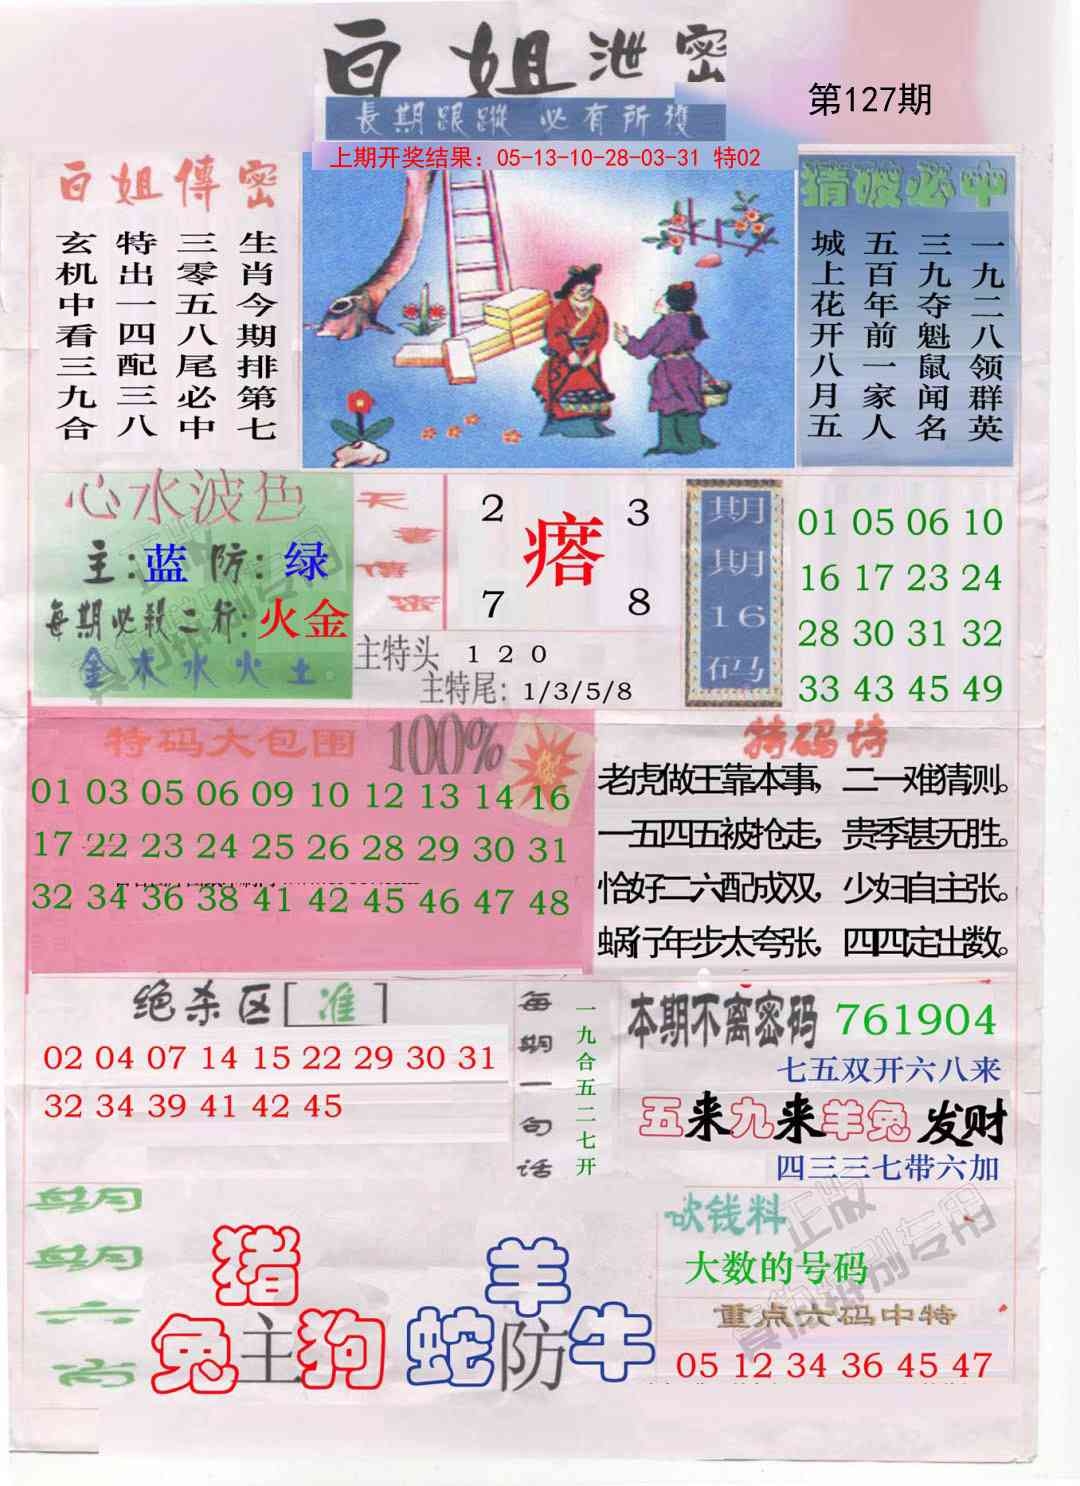 白姐泄密
長期跟蹤 必有所獲
第127期
上期开奖结果：05-13-10-28-03-31 特02
白姐傳密
生肖今期排第七
三零五八尾必中
特出一四配三八
玄机中看三九合
猜破必中
一九二八领群英
三九夺魁鼠闻名
五百年前一家人
城上花开八月五
心水波色
主:蓝 防:绿
每期必殺二行:火金
金木水火土
天書傳密
2 3
瘩
7 8
主特头 1 2 0
主特尾: 1/3/5/8
期期16码
01 05 06 10
16 17 23 24
28 30 31 32
33 43 45 49
特码大包围 100%
01 03 05 06 09 10 12 13 14 16
17 22 23 24 25 26 28 29 30 31
32 34 36 38 41 42 45 46 47 48
特码诗
老虎做王靠本事，二一难猜则。
一五四五被抢走，贵季甚无胜。
恰好二六配成双，少妇自主张。
蜗行年步太夸张，四四定出数。
绝杀区[准]
02 04 07 14 15 22 29 30 31
32 34 39 41 42 45
每期一句话
一九合五二七开
本期不离密码 761904
七五双开六八来
五来九来羊兔发财
四三三七带六加
期期六肖
猪
兔主狗
羊
蛇防牛
吹钱料
大数的号码
重点六码中特
05 12 34 36 45 47